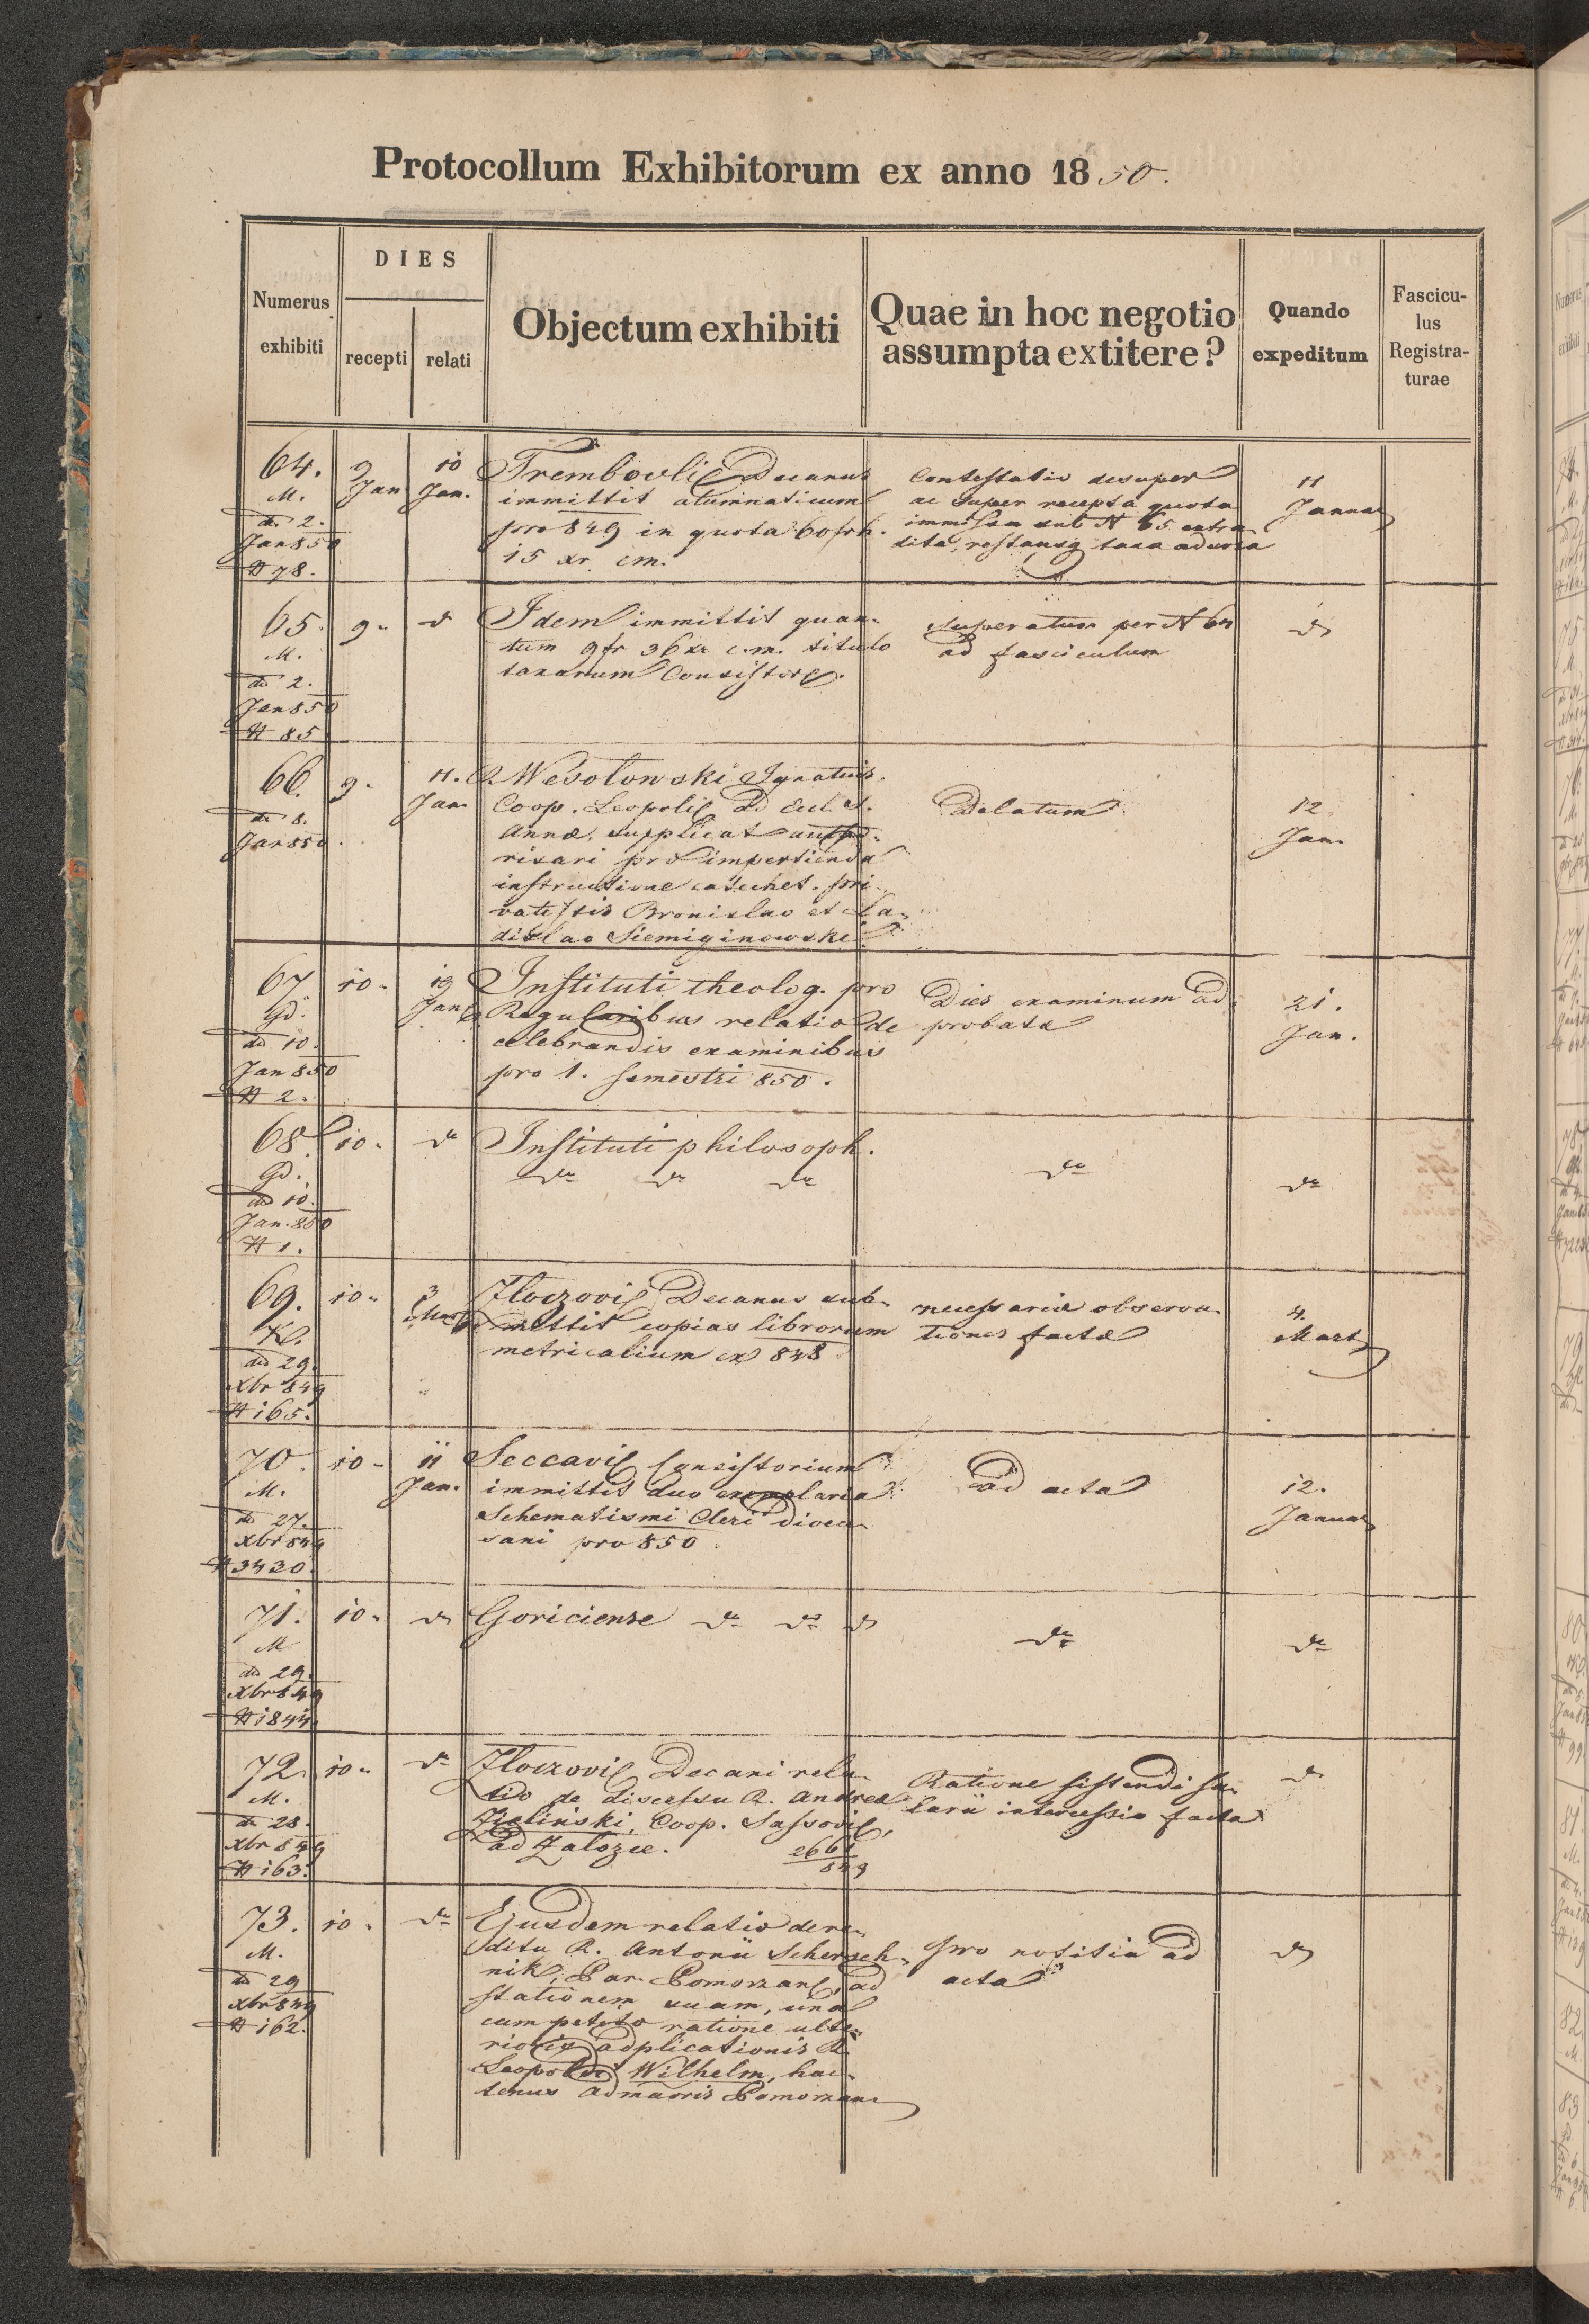 Protocollum Exhibitorum ex anno 1850.
Numerus exhibiti
DIES
recepti
relati
Objectum exhibiti
Quae in hoc negotio assumpta extitere?
Quando expeditum
Fascicu-
lus
Registra-
turae
64.
M.
dd 2.
Jan 850
N 78.
9
Jan
10
Jan.
Trembovlic Decanus
immittit alumnaticum
pro 849 in quota 60 frh.
15 xr. cm.
Contestatio desuper
ac super recepta quota
immissa sub N 65 extra
dita, restansq taxa
11
Januar
65.
M.
dd 2.
Jan 850
N 85
9.
d
Idem immittit quan-
tum 9 fr 36 xr c.m. titulo
taxarum Consistor.
Superatum per N 64
ad fasciculum
d
66.
dd 8.
Jan 850.
9.
11.
Jan.
R Wesołowski Ignatius.
Coop. Leopolis ad Eccl. S.
Annæ, supplicat autho-
risari pro impertienda
instructione catechet. pri-
vatistis Bronislao et La-
dislao Siemiginowski.
Delatum
12
Jan.
67
Gd.
dd 10.
Jan 850
N 2.
10.
19
Jan
Instituti theolog. pro
Regularibus relatio de
celebrandis examinibus
pro 1. semestri 850.
Dies examinum ad
probata
21.
Jan.
68.
Gd.
dd 10.
Jan. 850
N 1.
10.
do
Instituti philosoph.
do do do
do
do
69.
dd 29.
Xbr 849
N 165.
10.
3
Mart
Zloczovic Decanus sub-
mittit copias librorum
metricalium ex 848
necessariæ observa-
tiones factæ
4.
Mart
70.
M.
dd 27.
Xbr 849
N 3420.
10.
11
Jan.
Seccavic Consistorium
immittit duo exemplaria
Schematismi Cleri dioece-
sani pro 850
ad acta
12.
Januar
71.
M
dd 29.
Xbr 849
N 1844
10.
do
Goriciense do do do
do
do
72.
M.
dd 28.
Xbr 849
N 163.
10.
do
Zloczovic Decani rela-
tio de discessu R. Andreæ
Zieliński, Coop. Sassovic,
ad Załozce. 2661
849
Ratione sistendi sa-
larii intercessio facta
do
73.
M.
dd 29
Xbr 849
N 162.
10.
do
Ejusdem relatio de re-
ditu R. Antonii Scherzch-
nik, Par. Pomorzan, ad
stationem suam, una
cum petito ratione ulte-
rioris adplicationis R.
Leopoldi Wilhelm, hac-
tenus admoris Pomorzan
Pro notitia ad
acta
do